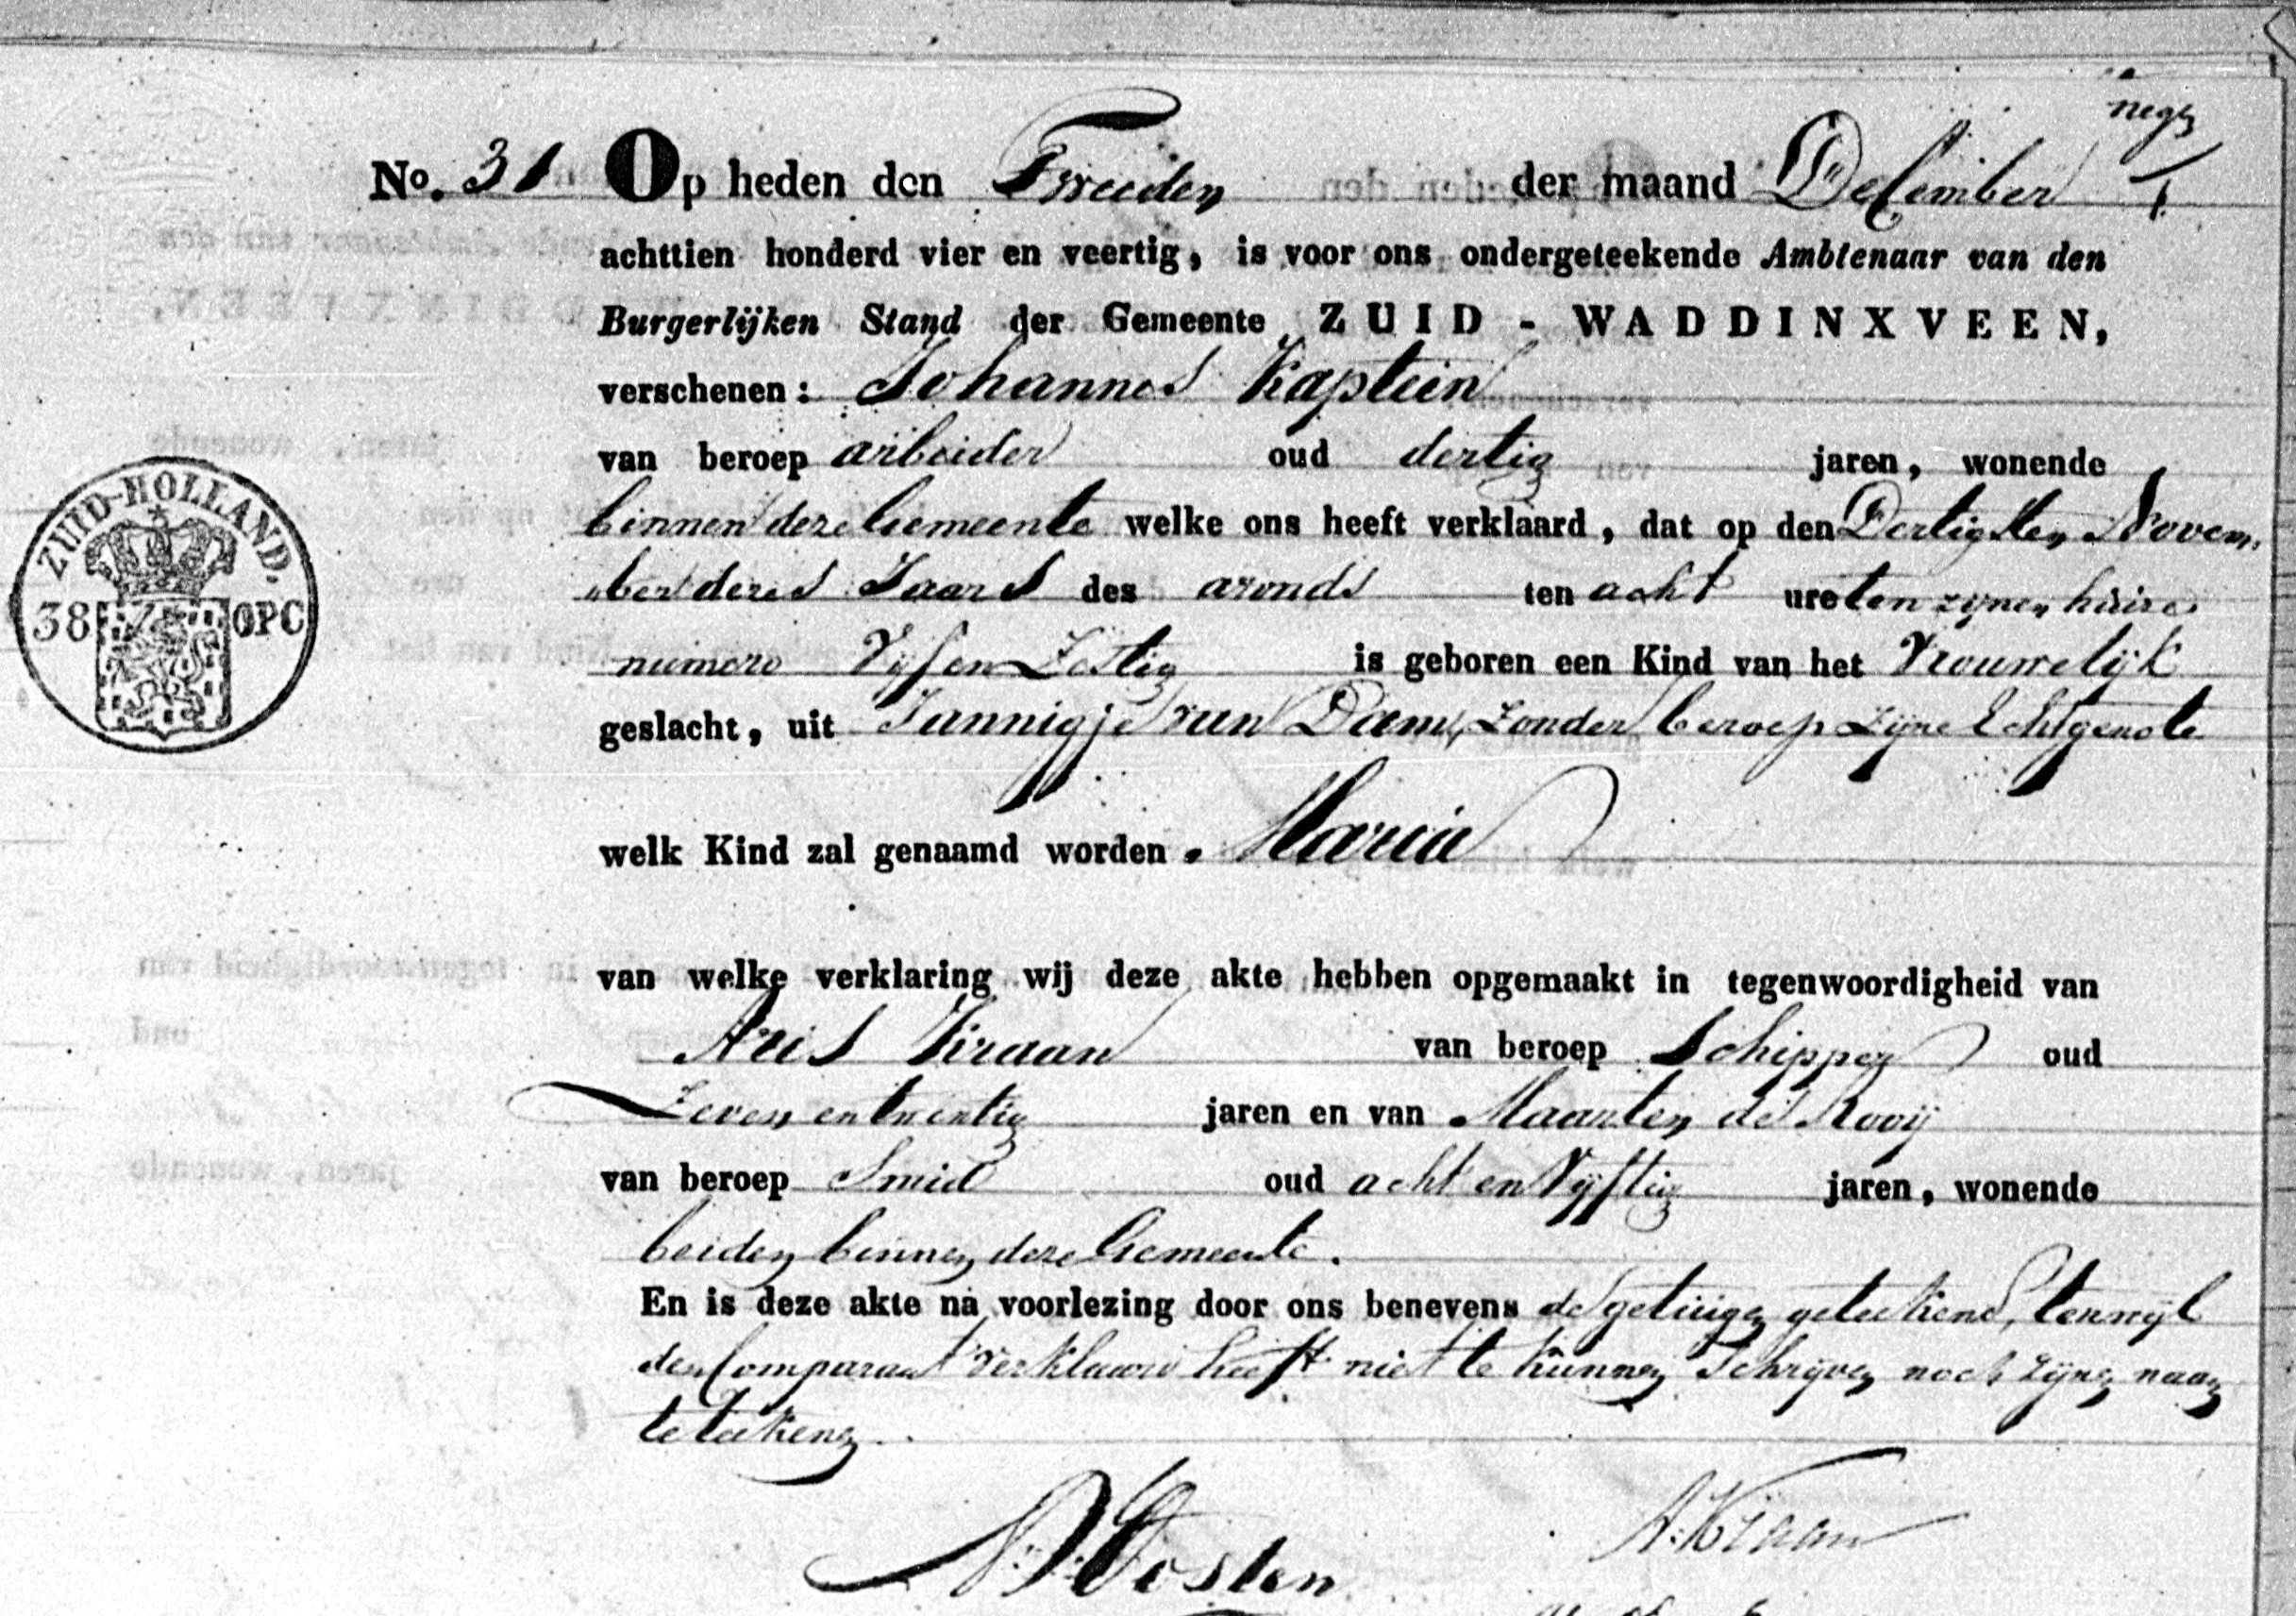 neg
No. 31 Op heden den Tweeden der maand December
achttien honderd vier en veertig, is voor ons ondergeteekende Ambtenaar van den
Burgerlijken Stand der Gemeente ZUID-WADDINXVEEN,
verschenen: Johannes Kaptein
van beroep arbeider oud dertig jaren, wonende
binnen deze Gemeente welke ons heeft verklaard, dat op den Dertigsten Novem
ber dezes Jaars des avonds ten acht ure ten zynen huize
numero Vyf en Zestig is geboren een Kind van het Vrouwelijk
geslacht, uit Jannigje van Dam, zonder beroep zijne Echtgenote
welk Kind zal genaamd worden. Maria
van welke verklaring wij deze akte hebben opgemaakt in tegenwoordigheid van
Aris Kraan van beroep Schipper oud
Zeven en twintig jaren en van Maarten de Rooij
van beroep Smid oud acht en Vijftig jaren, wonende
beiden binnen deze Gemeente.
En is deze akte na voorlezing door ons benevens de getuigen geteekend, terwijl
den Comparant verklaard heeft niet te kunnen Schrijven noch zijnen naam
te teekenen
A. Kraan
ZUID-HOLLAND.
38 OPC